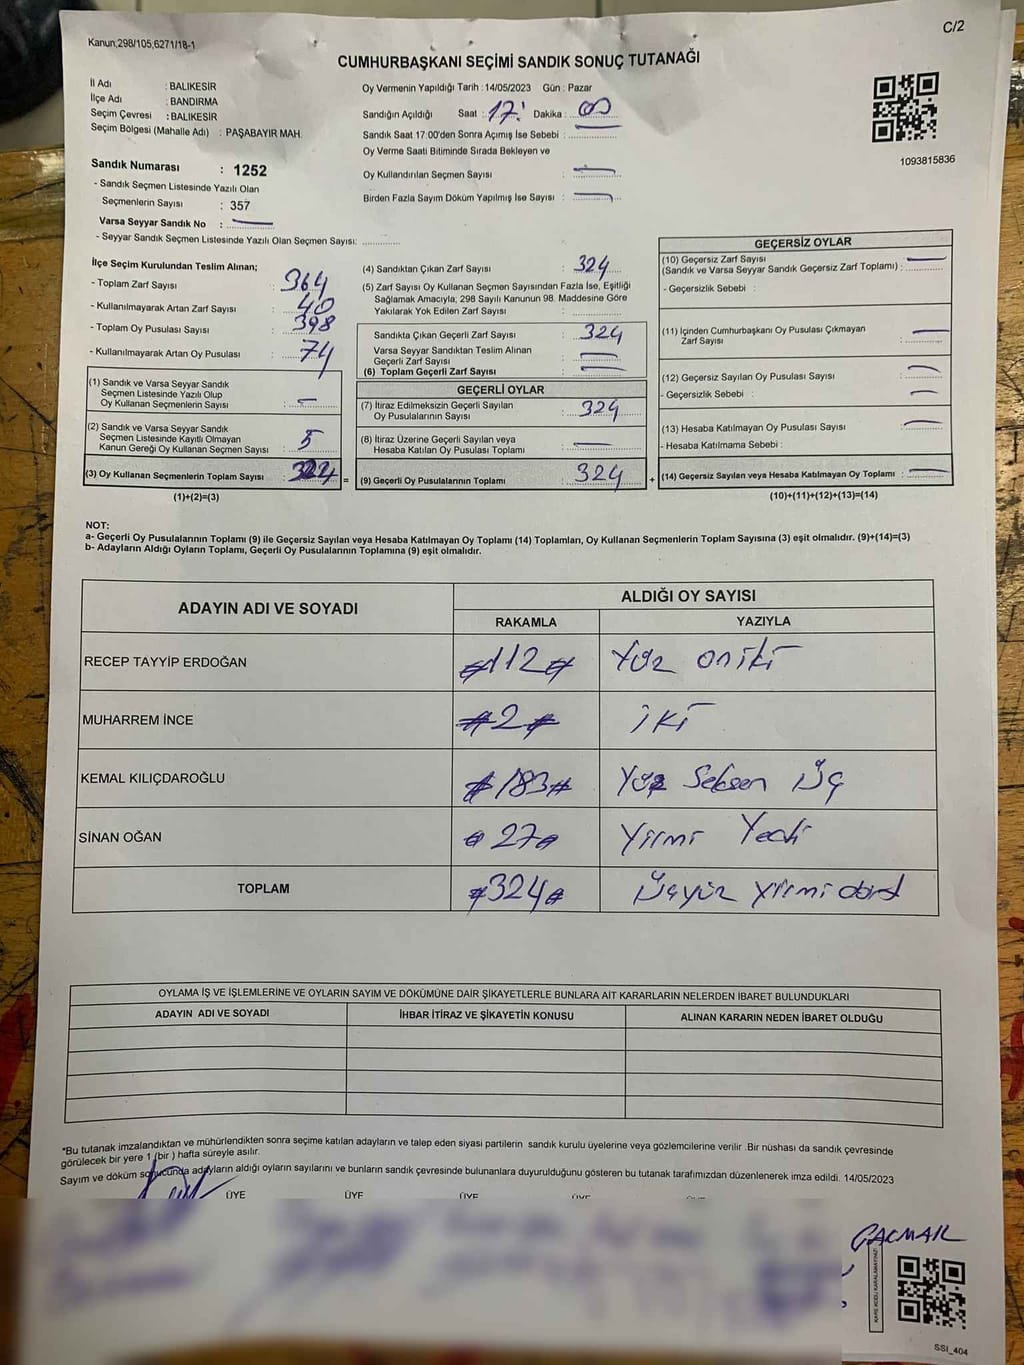 Kanun,298/105,6271/18-1
C/2
CUMHURBAŞKANI SEÇİMİ SANDIK SONUÇ TUTANAĞI
İl Adı : BALIKESİR
İlçe Adı : BANDIRMA
Seçim Çevresi : BALIKESİR
Seçim Bölgesi (Mahalle Adı) : PAŞABAYIR MAH.
Sandık Numarası : 1252
- Sandık Seçmen Listesinde Yazılı Olan
Seçmenlerin Sayısı : 357
Varsa Seyyar Sandık No :
- Seyyar Sandık Seçmen Listesinde Yazılı Olan Seçmen Sayısı:
Oy Vermenin Yapıldığı Tarih : 14/05/2023 Gün : Pazar
Sandığın Açıldığı Saat : 17: Dakika : 00
Sandık Saat 17:00'den Sonra Açımış İse Sebebi :
Oy Verme Saati Bitiminde Sırada Bekleyen ve
Oy Kullandırılan Seçmen Sayısı :
Birden Fazla Sayım Döküm Yapılmış İse Sayısı :
1093815836
İlçe Seçim Kurulundan Teslim Alınan;
- Toplam Zarf Sayısı : 364
- Kullanılmayarak Artan Zarf Sayısı : 40
- Toplam Oy Pusulası Sayısı : 398
- Kullanılmayarak Artan Oy Pusulası : 74
(1) Sandık ve Varsa Seyyar Sandık
Seçmen Listesinde Yazılı Olup
Oy Kullanan Seçmenlerin Sayısı : -
(2) Sandık ve Varsa Seyyar Sandık
Seçmen Listesinde Kayıtlı Olmayan
Kanun Gereği Oy Kullanan Seçmen Sayısı : 5
(3) Oy Kullanan Seçmenlerin Toplam Sayısı : 324 =
(1)+(2)=(3)
(4) Sandıktan Çıkan Zarf Sayısı : 324
(5) Zarf Sayısı Oy Kullanan Seçmen Sayısından Fazla İse, Eşitliği
Sağlamak Amacıyla; 298 Sayılı Kanunun 98. Maddesine Göre
Yakılarak Yok Edilen Zarf Sayısı :
Sandıkta Çıkan Geçerli Zarf Sayısı : 324
Varsa Seyyar Sandıktan Teslim Alınan
Geçerli Zarf Sayısı :
(6) Toplam Geçerli Zarf Sayısı :
GEÇERLİ OYLAR
(7) İtiraz Edilmeksizin Geçerli Sayılan
Oy Pusulalarının Sayısı : 324
(8) İtiraz Üzerine Geçerli Sayılan veya
Hesaba Katılan Oy Pusulası Toplamı :
(9) Geçerli Oy Pusulalarının Toplamı : 324 +
GEÇERSİZ OYLAR
(10) Geçersiz Zarf Sayısı
(Sandık ve Varsa Seyyar Sandık Geçersiz Zarf Toplamı) :
- Geçersizlik Sebebi :
(11) İçinden Cumhurbaşkanı Oy Pusulası Çıkmayan
Zarf Sayısı :
(12) Geçersiz Sayılan Oy Pusulası Sayısı :
- Geçersizlik Sebebi :
(13) Hesaba Katılmayan Oy Pusulası Sayısı :
- Hesaba Katılmama Sebebi :
(14) Geçersiz Sayılan veya Hesaba Katılmayan Oy Toplamı :
(10)+(11)+(12)+(13)=(14)
NOT:
a- Geçerli Oy Pusulalarının Toplamı (9) ile Geçersiz Sayılan veya Hesaba Katılmayan Oy Toplamı (14) Toplamları, Oy Kullanan Seçmenlerin Toplam Sayısına (3) eşit olmalıdır. (9)+(14)=(3)
b- Adayların Aldığı Oyların Toplamı, Geçerli Oy Pusulalarının Toplamına (9) eşit olmalıdır.
ADAYIN ADI VE SOYADI
ALDIĞI OY SAYISI
RAKAMLA YAZIYLA
RECEP TAYYİP ERDOĞAN #112# Yüz oniki
MUHARREM İNCE #2# iki
KEMAL KILIÇDAROĞLU #183# Yüz Seksen Üç
SİNAN OĞAN #27# Yirmi Yedi
TOPLAM #324# Üçyüz Yirmi dört
OYLAMA İŞ VE İŞLEMLERİNE VE OYLARIN SAYIM VE DÖKÜMÜNE DAİR ŞİKAYETLERLE BUNLARA AİT KARARLARIN NELERDEN İBARET BULUNDUKLARI
ADAYIN ADI VE SOYADI İHBAR İTİRAZ VE ŞİKAYETİN KONUSU ALINAN KARARIN NEDEN İBARET OLDUĞU
*Bu tutanak imzalandıktan ve mühürlendikten sonra seçime katılan adayların ve talep eden siyasi partilerin sandık kurulu üyelerine veya gözlemcilerine verilir .Bir nüshası da sandık çevresinde
görülecek bir yere 1 (bir ) hafta süreyle asılır.
Sayım ve döküm sonucunda adayların aldığı oyların sayılarını ve bunların sandık çevresinde bulunanlara duyurulduğunu gösteren bu tutanak tarafımızdan düzenlenerek imza edildi. 14/05/2023
ÜYE ÜYE ÜYE ÜYE
KARE KODU KARALAMAYINIZ!
SSI_404